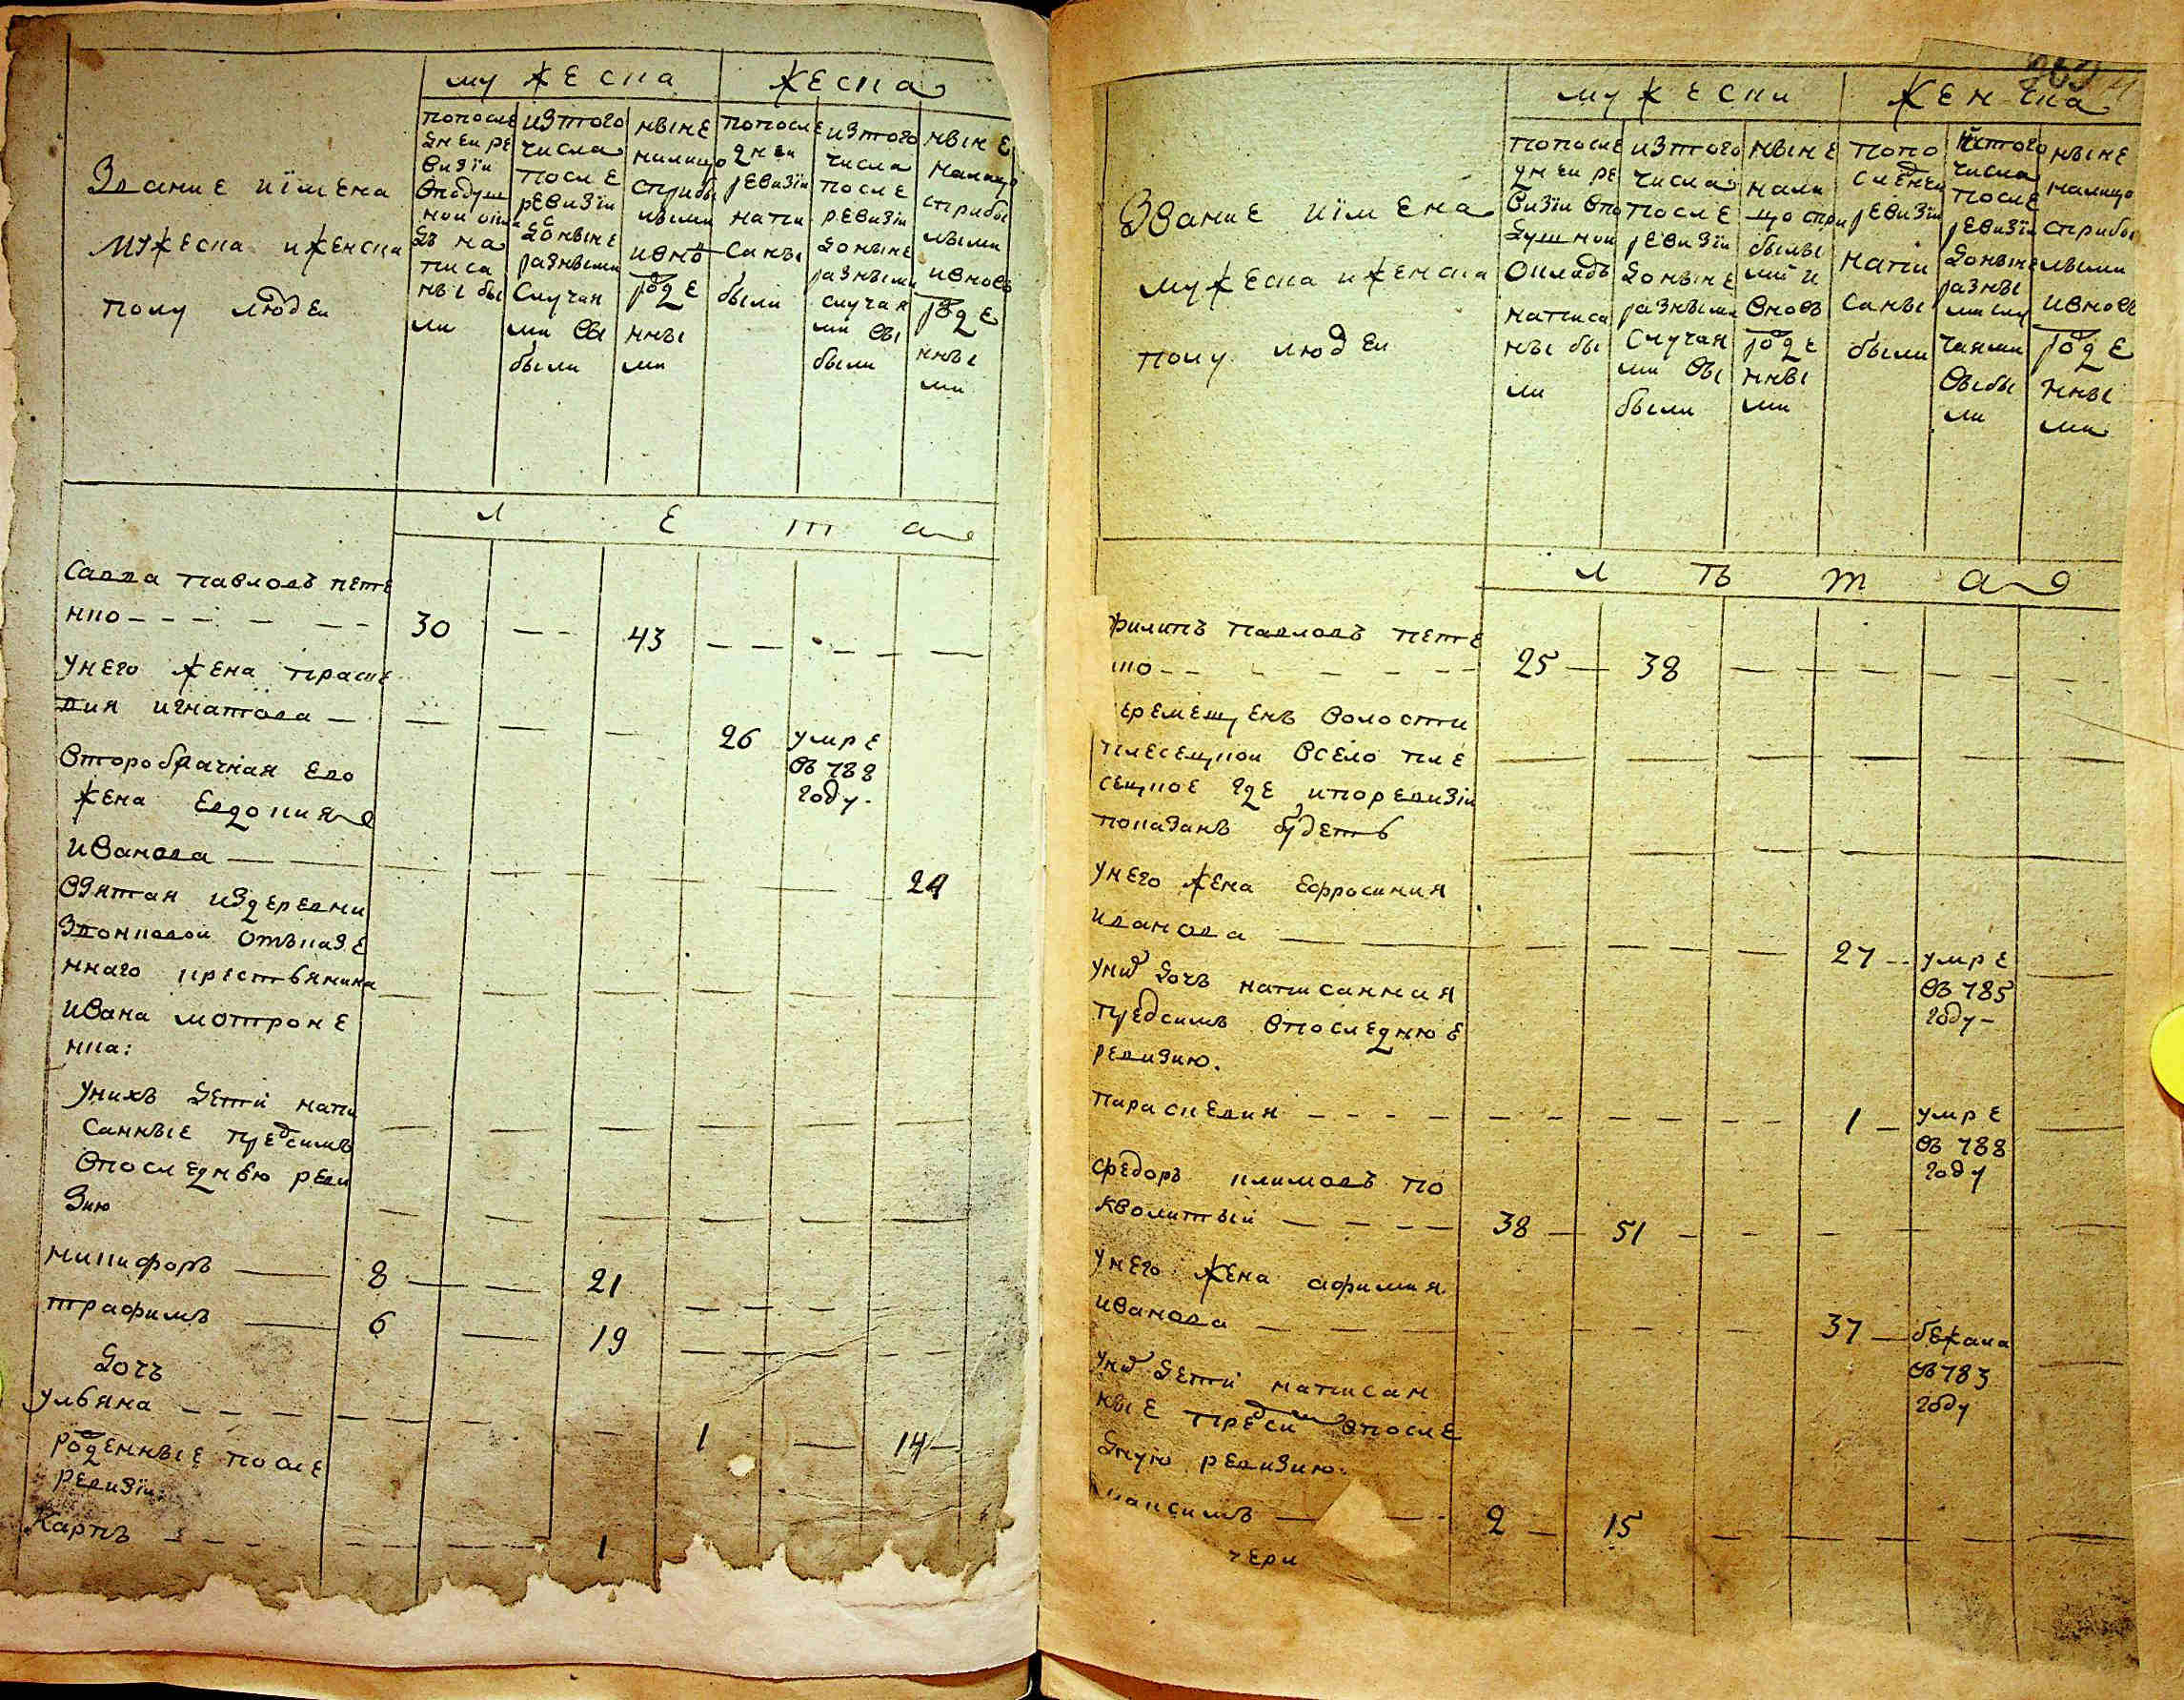 му жеска
жеска
Звание иїмена
мужеска иженска
полу людеи
попосле
днеи ре
визїи
вподуш
нои окла
дъ на
писа
ны бы
ли
изтого
числа
после
ревизїи
доныне
разными
случая
ми вы
были
ныне
налицо
сприбы
лыми
ивнов
рожде
нны
ми
попосле
днеи
ревизїи
напи
саны
были
изтого
числа
после
ревизїи
доныне
разными
случая
ми вы
были
ныне
налицо
сприбы
лыми
ивновь
рожде
нны
ми
л е т а
Савва павловъ пете
нко 30 43
унего жена праске
вия игнатова 26 умре
въ 788
году
второбрачная ево
жена евдокия
иванова 24
взятая издеревни
Звонковои отъказе
ннаго крестьянина
ивана мотроне
нка:
унихъ дети напи
санные предсимъ
впоследнью реви
зию
никифоръ 8 21
трафимъ 6 19
дочь
ульяна 1 14
рожденные после
ревизїи.
Карпъ 1
му жески
женска
Звание иїмена
мужеска иженска
полу людеи
попосле
днеи ре
визїи впо
душнои
окладъ
написа
ны бы
ли
изтого
числа
после
ревизїи
доныне
разными
случая
ми вы
были
ныне
нали
цо спри
былы
ми и
вновь
рожде
нны
ми
попо
следнеи
ревизїи
напи
саны
были
изтого
числа
после
ревизїи
доныне
разны
ми слу
чаями
выбы
ли
ныне
налицо
сприбы
лыми
ивновь
рожде
нны
ми
л ѣ т а
филипъ павловъ пете
нко 25 38
перемещенъ волости
плесецкои всело пле
сецкое где ипоревизїи
показанъ будетъ
унего жена ефросиния
иванова 27 умре
въ 785
году
унихъ дочь написанная
предсимъ впоследнюе
ревизию.
параскевия 1 умре
въ 788
году
федоръ климовъ по
жволитыи 38 51
унего жена афимия
иванова 37 бежала
въ 783
году
унихъ дети написан
ные предсим впосле
дную ревизию.
максимъ 2 15
чери